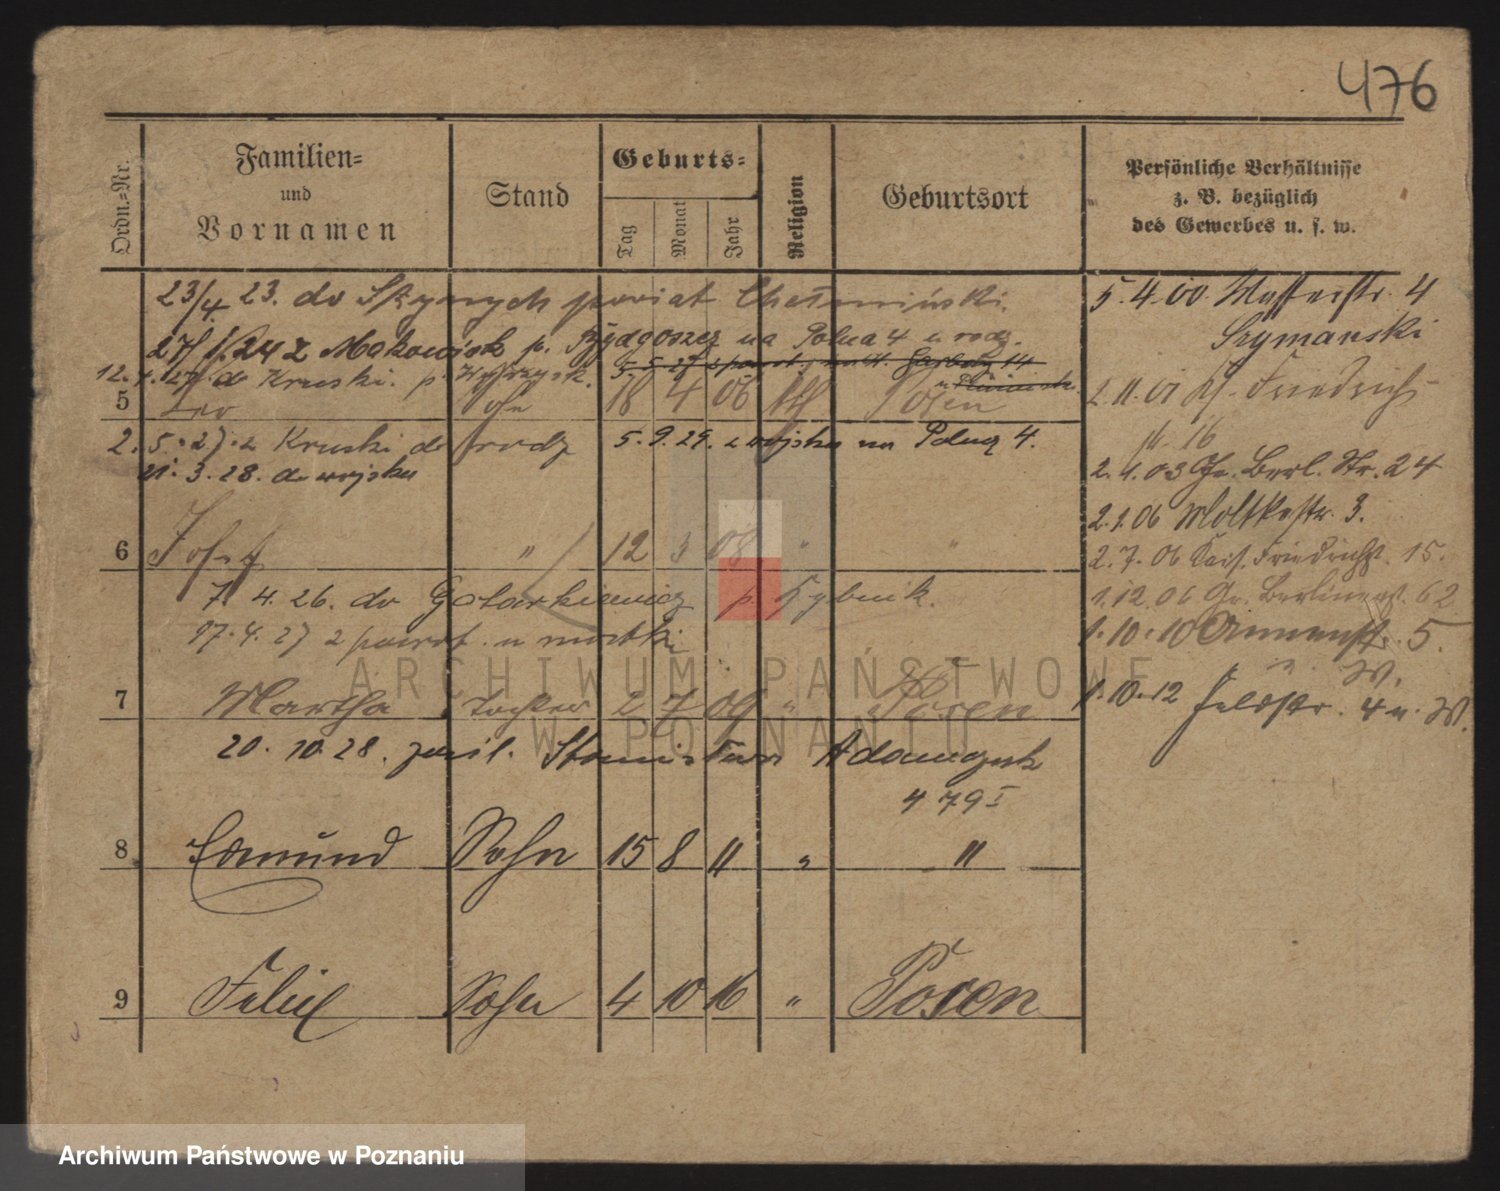 476
Ordn.=Nr.
Familien=
und
Vornamen
Stand
Geburts=
Tag
Monat
Jahr
Religion
Geburtsort
Persönliche Verhältnisse
z. B. bezüglich
des Gewerbes u. s. w.
23/4 23. do powiat Chełmiński.
27/ 24 z p. Bydgoszcz na Polna 4 u rodz.
12. 4. 27 do Kruski. p. Wyrzysk.
5 Leo Sohn 18 4 06 kth Posen
2. 5. 27. z Kruski do rodz 5. 9. 29. z wojska na Polną 4.
21. 3. 28. do wojska
6 Josef " 12 3 08 " "
7. 4. 26. do p. Rybnik.
17. 4. 27 z powrot. u matki
7 Martha Tochter 2 7 09 " Posen
20. 10. 28. zaśl. Stanisław Adamczyk
479 I
8 Edmund Sohn 15 8 11 " "
9 Felix Sohn 4 10 16 " Posen
5. 4. 00 4
Szymanski
2. 11. 01 Friedrich-
16
2. 1. 03 Gr. Berl. Str. 24
2. 1. 06 Moltkestr. 3.
2. 7. 06 Kais. Friedrichst. 15.
1. 12 06 Gr. Berlinerst. 62
1. 10. 10 5.
u. W.
1. 10. 12 Feldstr. 4 u. W.
ARCHIWUM PAŃSTWOWE
W POZNANIU
Archiwum Państwowe w Poznaniu